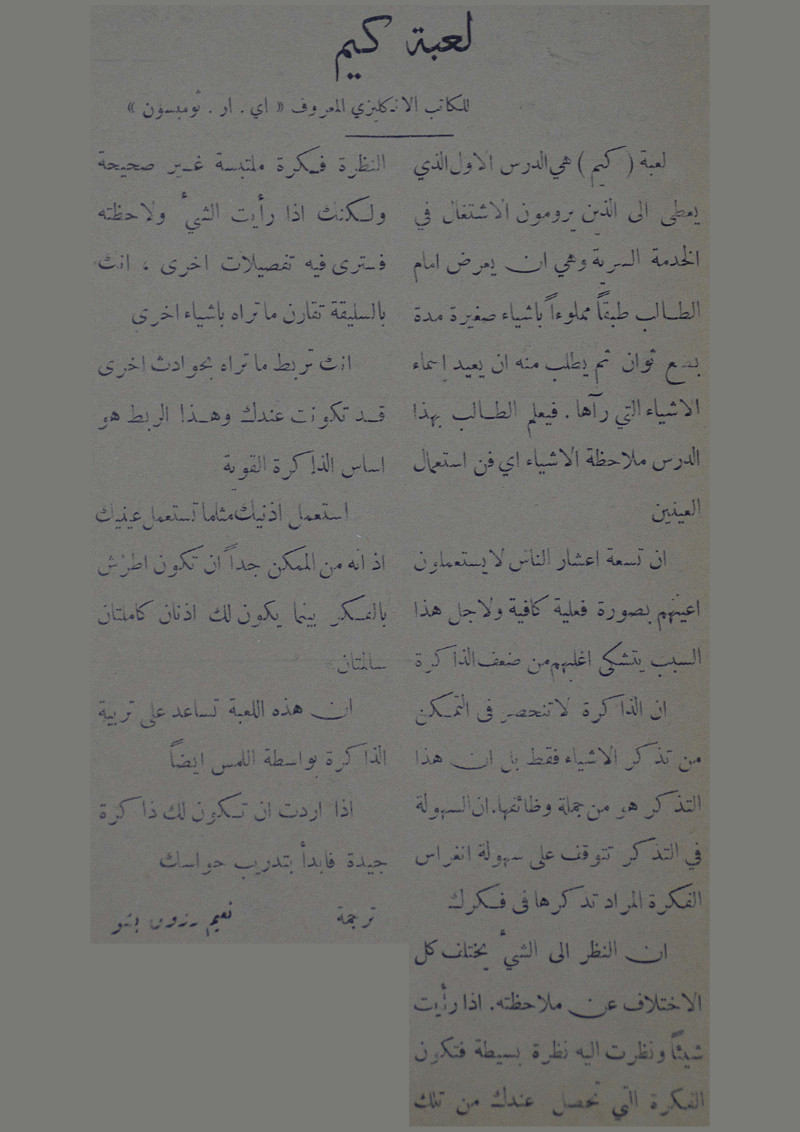 لعبة كيم
للكاتب الانكليزي المعروف « اي . ار . تومبسون »
لعبة ( كيم ) هي الدرس الاول الذي
يعطى الى الذين يرومون الاشتغال في
الخدمة السرية وهي ان يعرض امام
الطالب طبقاً مملوءاً باشياء صغيرة مدة
بضع ثوان ثم يطلب منه ان يعيد اسماء
الاشياء التي رآها . فيعلم الطالب بهذا
الدرس ملاحظة الاشياء اي فن استعمال
العينين
ان تسعة اعشار الناس لا يستعملون
اعينهم بصورة فعلية كافية ولاجل هذا
السبب يتشكى اغلبهم من ضعف الذاكرة
ان الذاكرة لا تنحصر في التمكن
من تذكر الاشياء فقط بل ان هذا
التذكر هو من جملة وظائفها . ان السهولة
في التذكر تتوقف على سهولة انغراس
الفكرة المراد تذكرها في فكرك
ان النظر الى الشيء يختلف كل
الاختلاف عن ملاحظته . اذا رأيت
شيئاً ونظرت اليه نظرة بسيطة فتكون
الفكرة التي تحصل عندك من تلك
النظرة فكرة ملتبسة غير صحيحة
ولكنك اذا رأيت الشيء ولاحظته
فسترى فيه تفصيلات اخرى ، انك
بالسليقة تقارن ما تراه باشياء اخرى
انك تربط ما تراه بحوادث اخرى
قد تكونت عندك وهذا الربط هو
اساس الذاكرة القوية
استعمل اذنيك مثلما تستعمل عينيك
اذ انه من الممكن جداً ان تكون اطرش
بالفكر بينما يكون لك اذنان كاملتان
سالمتان
ان هذه اللعبة تساعد على تربية
الذاكرة بواسطة اللمس ايضاً
اذا اردت ان تكون لك ذاكرة
جيدة فابدأ بتدريب حواسك
ترجمة نعيم رزوق